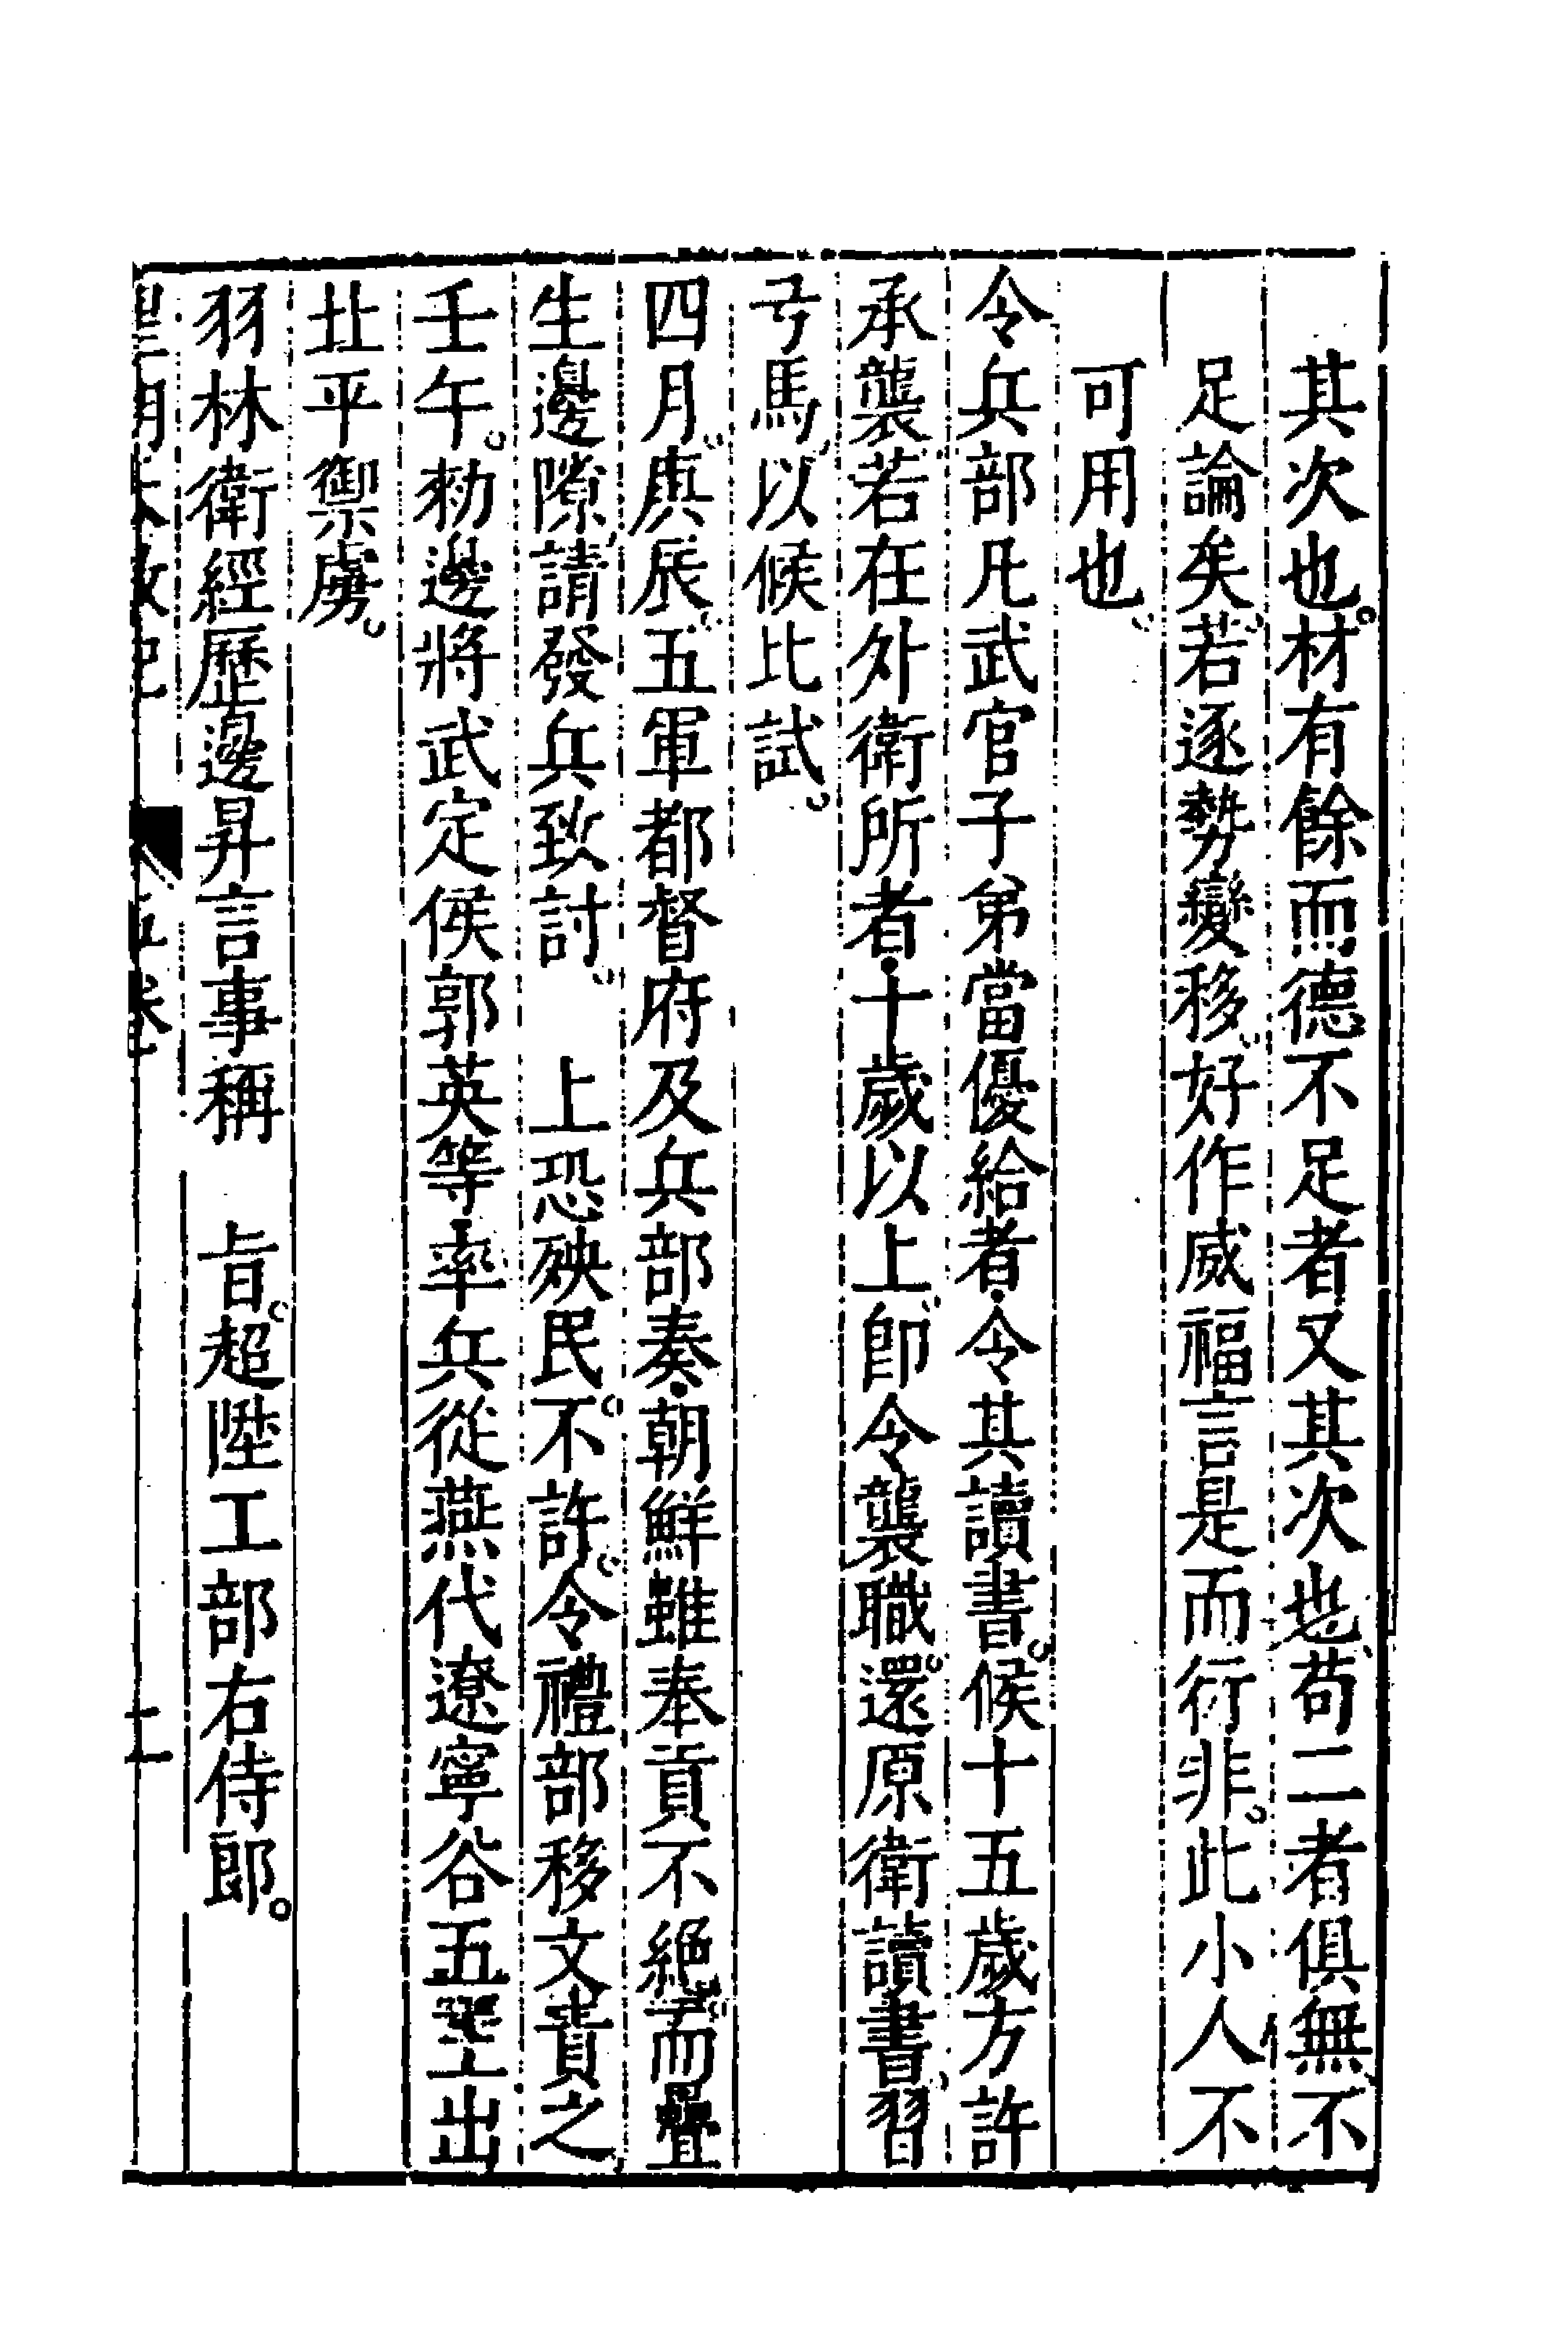 其次也。材有餘而德不足者又其次也、苟二者俱無、不
足論矣、若逐勢變移、好作威福言是而行非。此小人不
可用也、
令兵部凡武官子弟當優給者、令其讀書。候十五歲方許
承襲若在外衛所者、十歲以上、卽令襲職。還原衛讀書、習
弓馬、以候比試。
四月、庚辰、五軍都督府及兵部奏、朝鮮雖奉貢不絕、而疊
生邊隙、請發兵致討。　上恐殃民。不許、令禮部移文責之
壬午。勑邊將武定侯郭英等率兵從燕代遼寧谷五王出
北平禦虜。
羽林衛經歷邊昇言事稱　旨。超陞工部右侍郎。
五卷